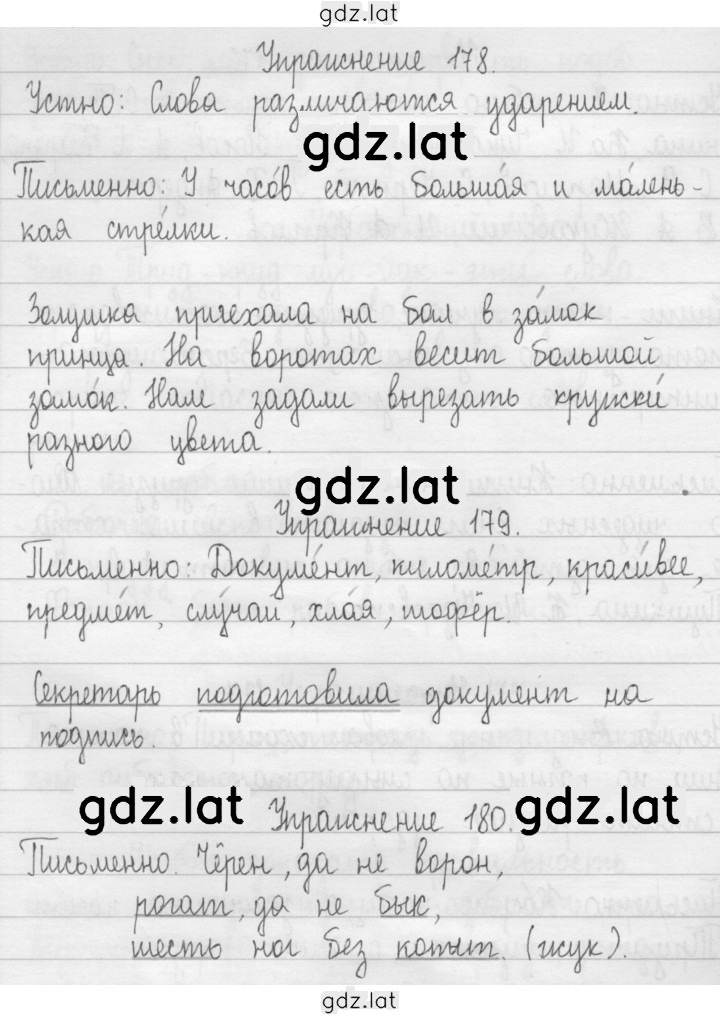 gdz.lat
Упражнение 178.
Устно: Слова различаются ударением.
gdz.lat
Письменно: У часо́в есть больша́я и ма́лень-
кая стре́лки.
Золушка приехала на бал в за́мок
принца. На воротах весит большой
замо́к. Нам задали вырезать кружки́
разного цвета.
gdz.lat
Упражнение 179.
Письменно: Докуме́нт, киломе́тр, краси́вее,
предме́т, слу́чай, хла́я, шофёр.
Секретарь подготовила документ на
подпись.
gdz.lat
Упражнение 180.
gdz.lat
Письменно. Чёрен, да не ворон,
рогат, да не бык,
шесть ног без копыт. (жук).
gdz.lat